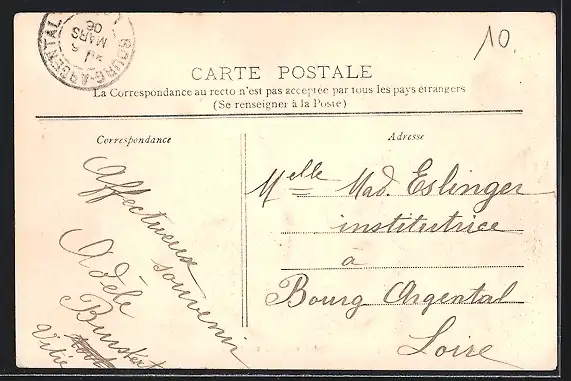 BOURG-ARGENTAL
6
MARS
06
10.
CARTE POSTALE
La Correspondance au recto n'est pas acceptée par tous les pays étrangers
(Se renseigner à la Poste)
Correspondance
Adresse
Affectueux
souvenir
Adèle
Melle Mad. Eslinger
institutrice
a
Bourg Argental
Loire